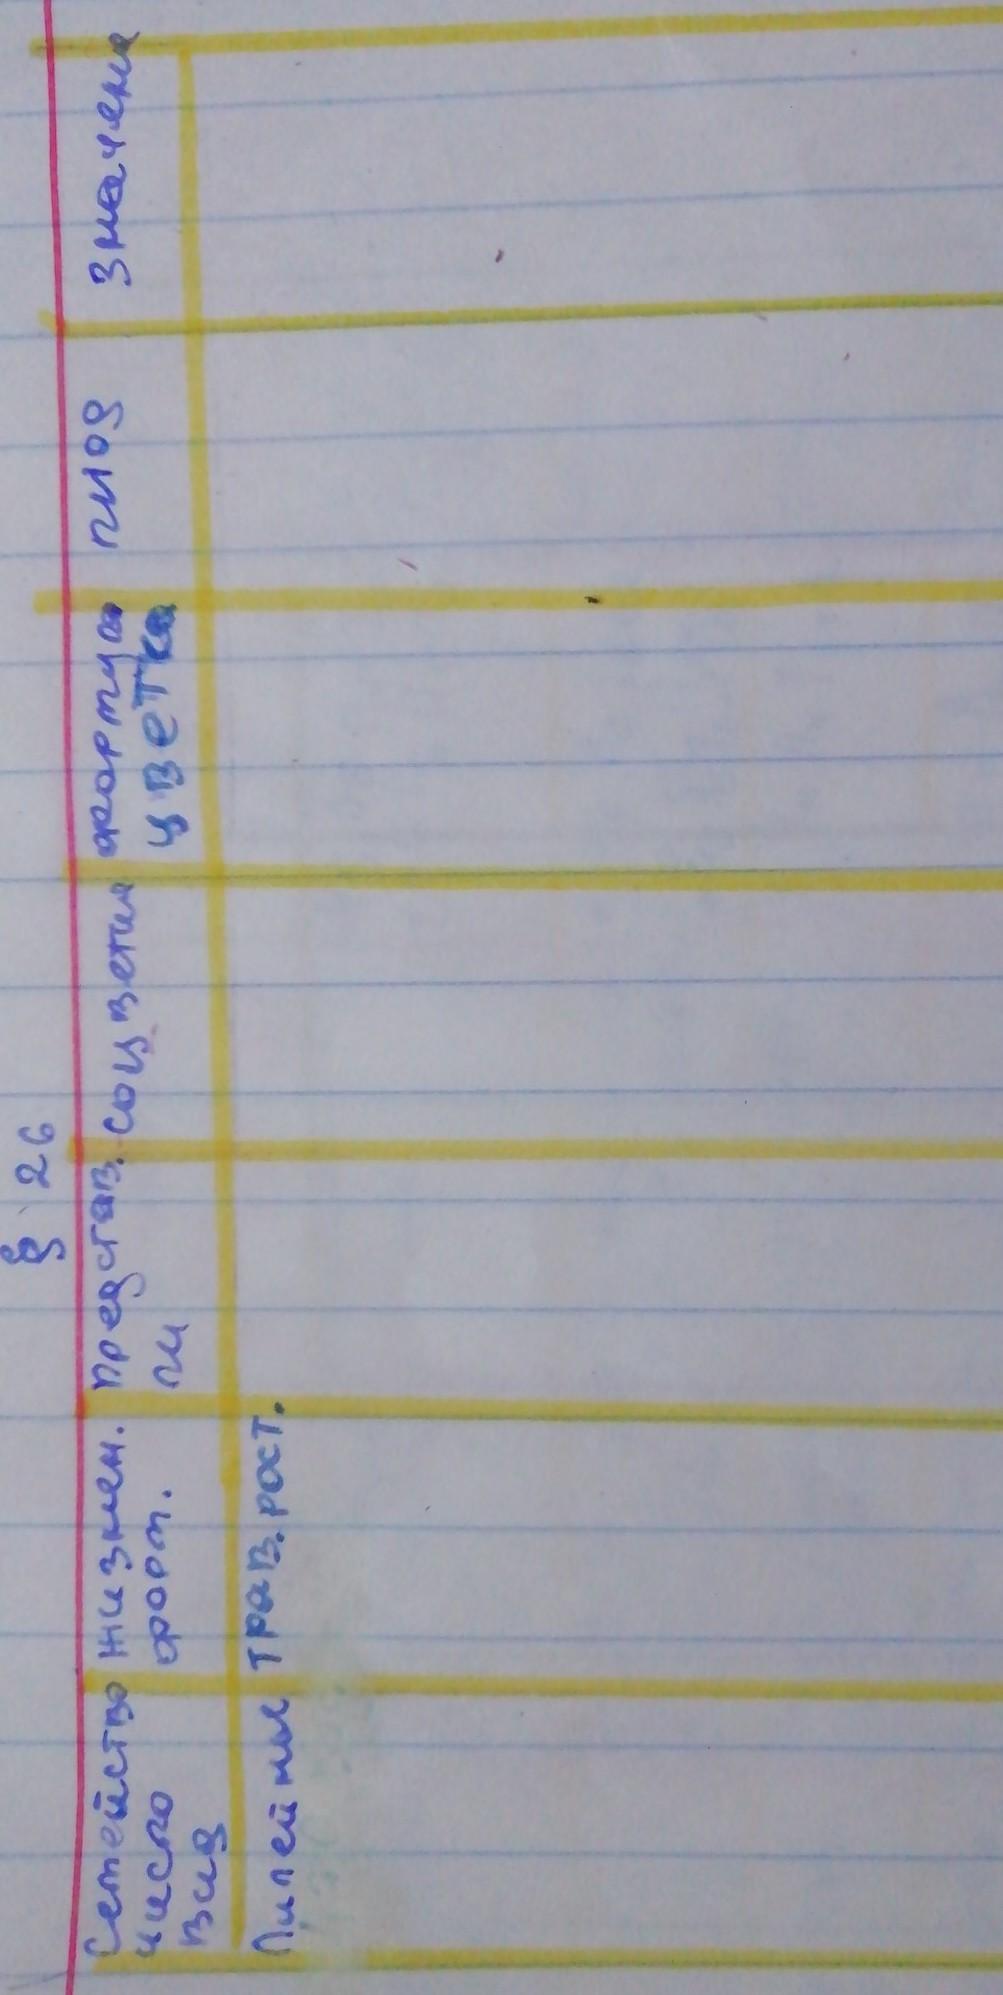 § 26
Семейство
число
вид
жизнен.
форм.
представ.
ли
соцветия
формула
цветка
плод
значени
Лилейные
трав. рост.